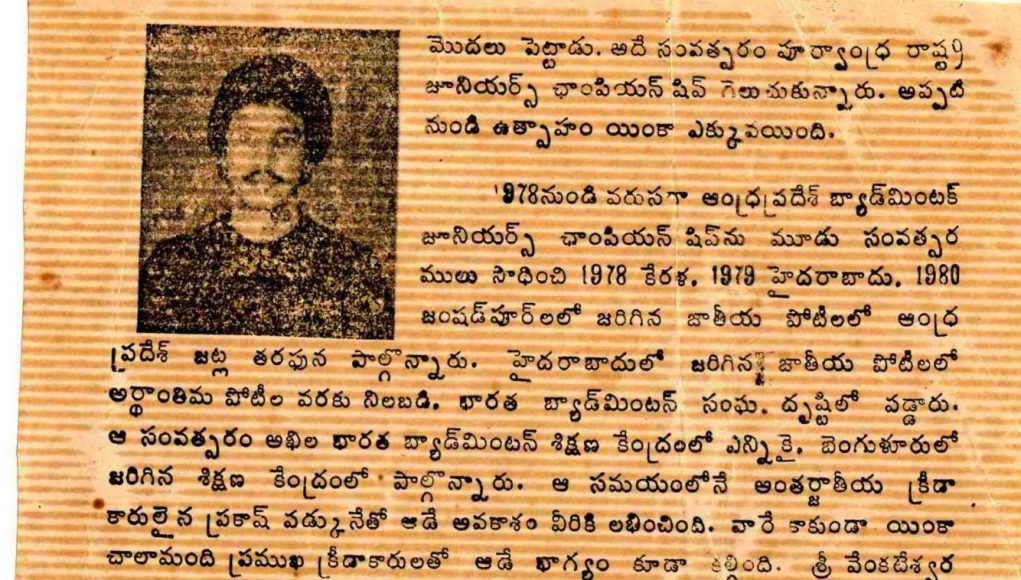 మొదలు పెట్టాడు. అదే సంవత్సరం పూర్వాంధ్ర రాష్ట్ర
జూనియర్స్ ఛాంపియన్ షిప్ గెలుచుకున్నారు. అప్పటి
నుండి ఉత్సాహం యింకా ఎక్కువయింది.
1978నుండి వరుసగా ఆంధ్రప్రదేశ్ బ్యాడ్మింటక్
జూనియర్స్ ఛాంపియన్ షిప్‌ను మూడు సంవత్సర
ములు సాధించి 1978 కేరళ, 1979 హైదరాబాదు, 1980
జంషడ్‌పూర్‌లలో జరిగిన జాతీయ పోటీలలో ఆంధ్ర
ప్రదేశ్ జట్ల తరఫున పాల్గొన్నారు. హైదరాబాదులో జరిగిన జాతీయ పోటీలలో
అర్థాంతిమ పోటీల వరకు నిలబడి, భారత బ్యాడ్‌మింటన్ సంఘ. దృష్టిలో పడ్డారు.
ఆ సంవత్సరం అఖిల భారత బ్యాడ్‌మింటన్ శిక్షణ కేంద్రంలో ఎన్నికై, బెంగుళూరులో
జరిగిన శిక్షణ కేంద్రంలో పాల్గొన్నారు. ఆ సమయంలోనే అంతర్జాతీయ క్రీడా
కారులైన ప్రకాష్ పడ్కునేతో ఆడే అవకాశం వీరికి లభించింది. వారే కాకుండా యింకా
చాలామంది ప్రముఖ క్రీడాకారులతో ఆడే భాగ్యం కూడా కల్గింది. శ్రీ వేంకటేశ్వర